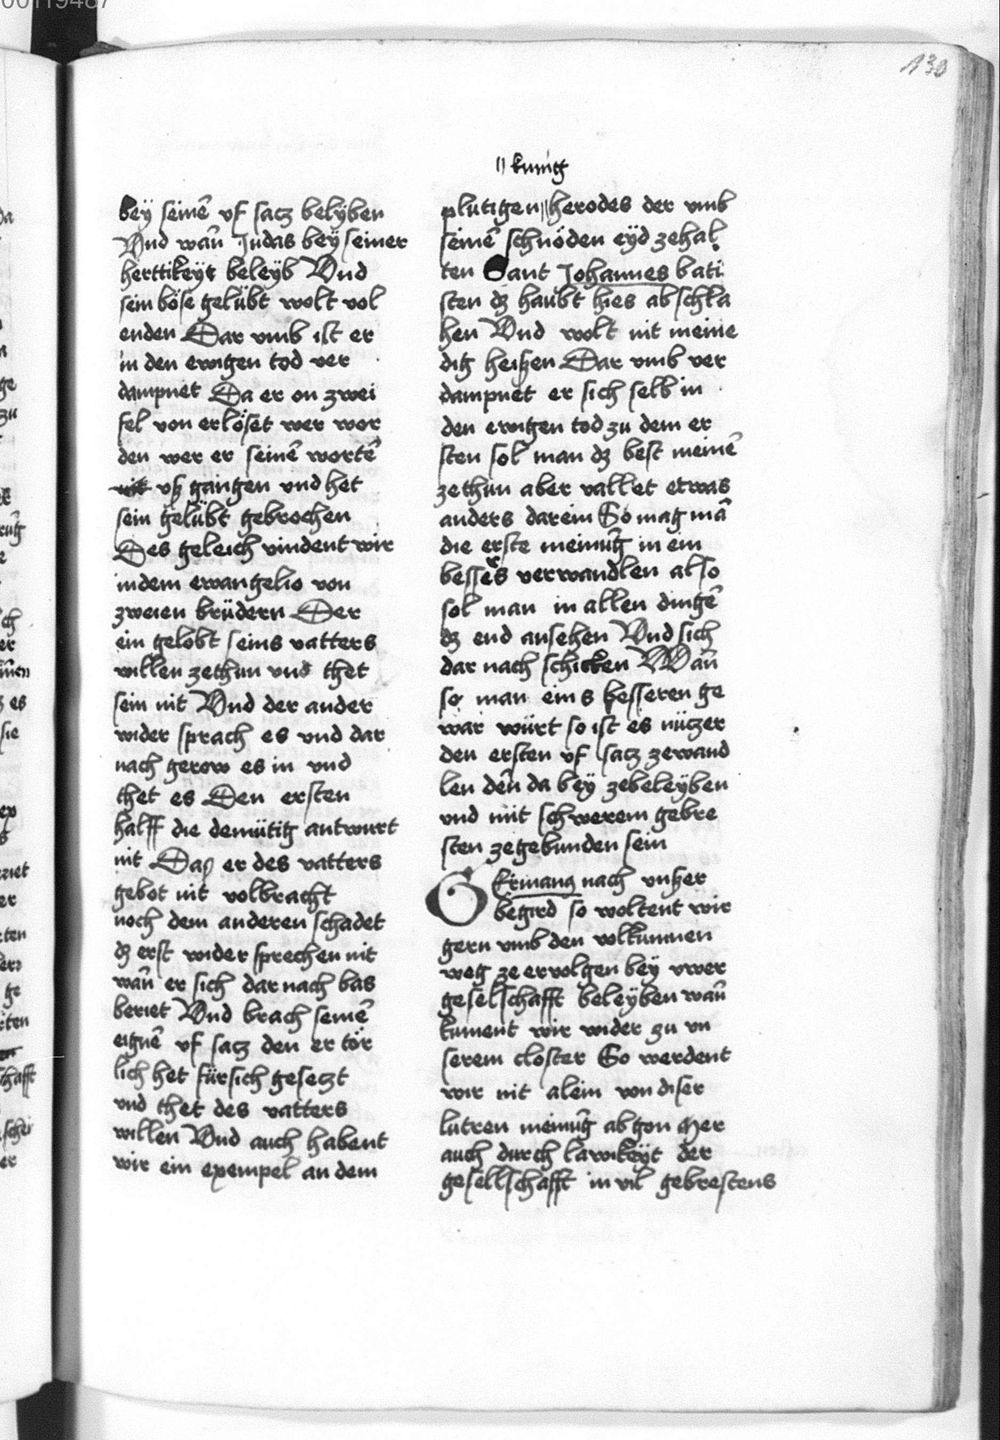 00119487
130
bey seinē vf sacz belyben
Vnd wan̄ Judas bey seiner
herttikeyt beleyb Vnd
sein böse gelübt wolt vol
enden Dar vmb ist er
in den ewigen tod ver
dampnet Da er on zwei
fel von erlöset wer wor
den wer er seinē wortē
nit vß gangen vnd het
sein gelübt gebrochen
Des geleich vindent wir
in dem ewangelio von
zweien brüdern Der
ein gelobt seins vatters
willen zethun vnd thet
sein nit Vnd der ander
wider sprach es vnd dar
nach gerow es in vnd
thet es Den ersten
halff die demütig antwurt
nit Das er des vatters
gebot nit volbracht
noch dem anderen schadet
dz erst wider sprechen nit
wan̄ er sich dar nach bas
beriet Vnd brach seinē
eignē vf sacz den er tör
lich het für sich gesetzt
vnd thet des vatters
willen Vnd auch habent
wir ein exempel an dem
|| kunig
plutigen || herodes der vmb
seinē schnöden eyd zehal
ten Sant Johannes bati
sten dz haubt hies ab schla
hen Vnd wolt nit meine
dig heißen Dar vmb ver
dampnet er sich selb in
den ewigen tod zu dem er
sten sol man dz best meinē
zethun aber vallet etwas
anders darein So mag mā
die erste meinūg in ein
bessers verwandlen also
sol man in allen dingē
dz end ansehen Vnd sich
dar nach schicken Wan̄
so man eins besseren ge
war würt so ist es nüczer
den ersten vf sacz zewand
len den̄ da bey zebeleyben
vnd mit schwerem gebre
sten zegebunden sein
Germang nach vnßer
begird so woltent wir
gern vmb den volkumnen
weg ze ervolgen bey vwer
gesellschafft beleyben wan̄
kument wir wider zu vn
serem closter So werdent
wir nit alein von diser
lutren meinūg ab gon Mer
auch durch lawikeyt der
gesellschafft in vil gebrestens